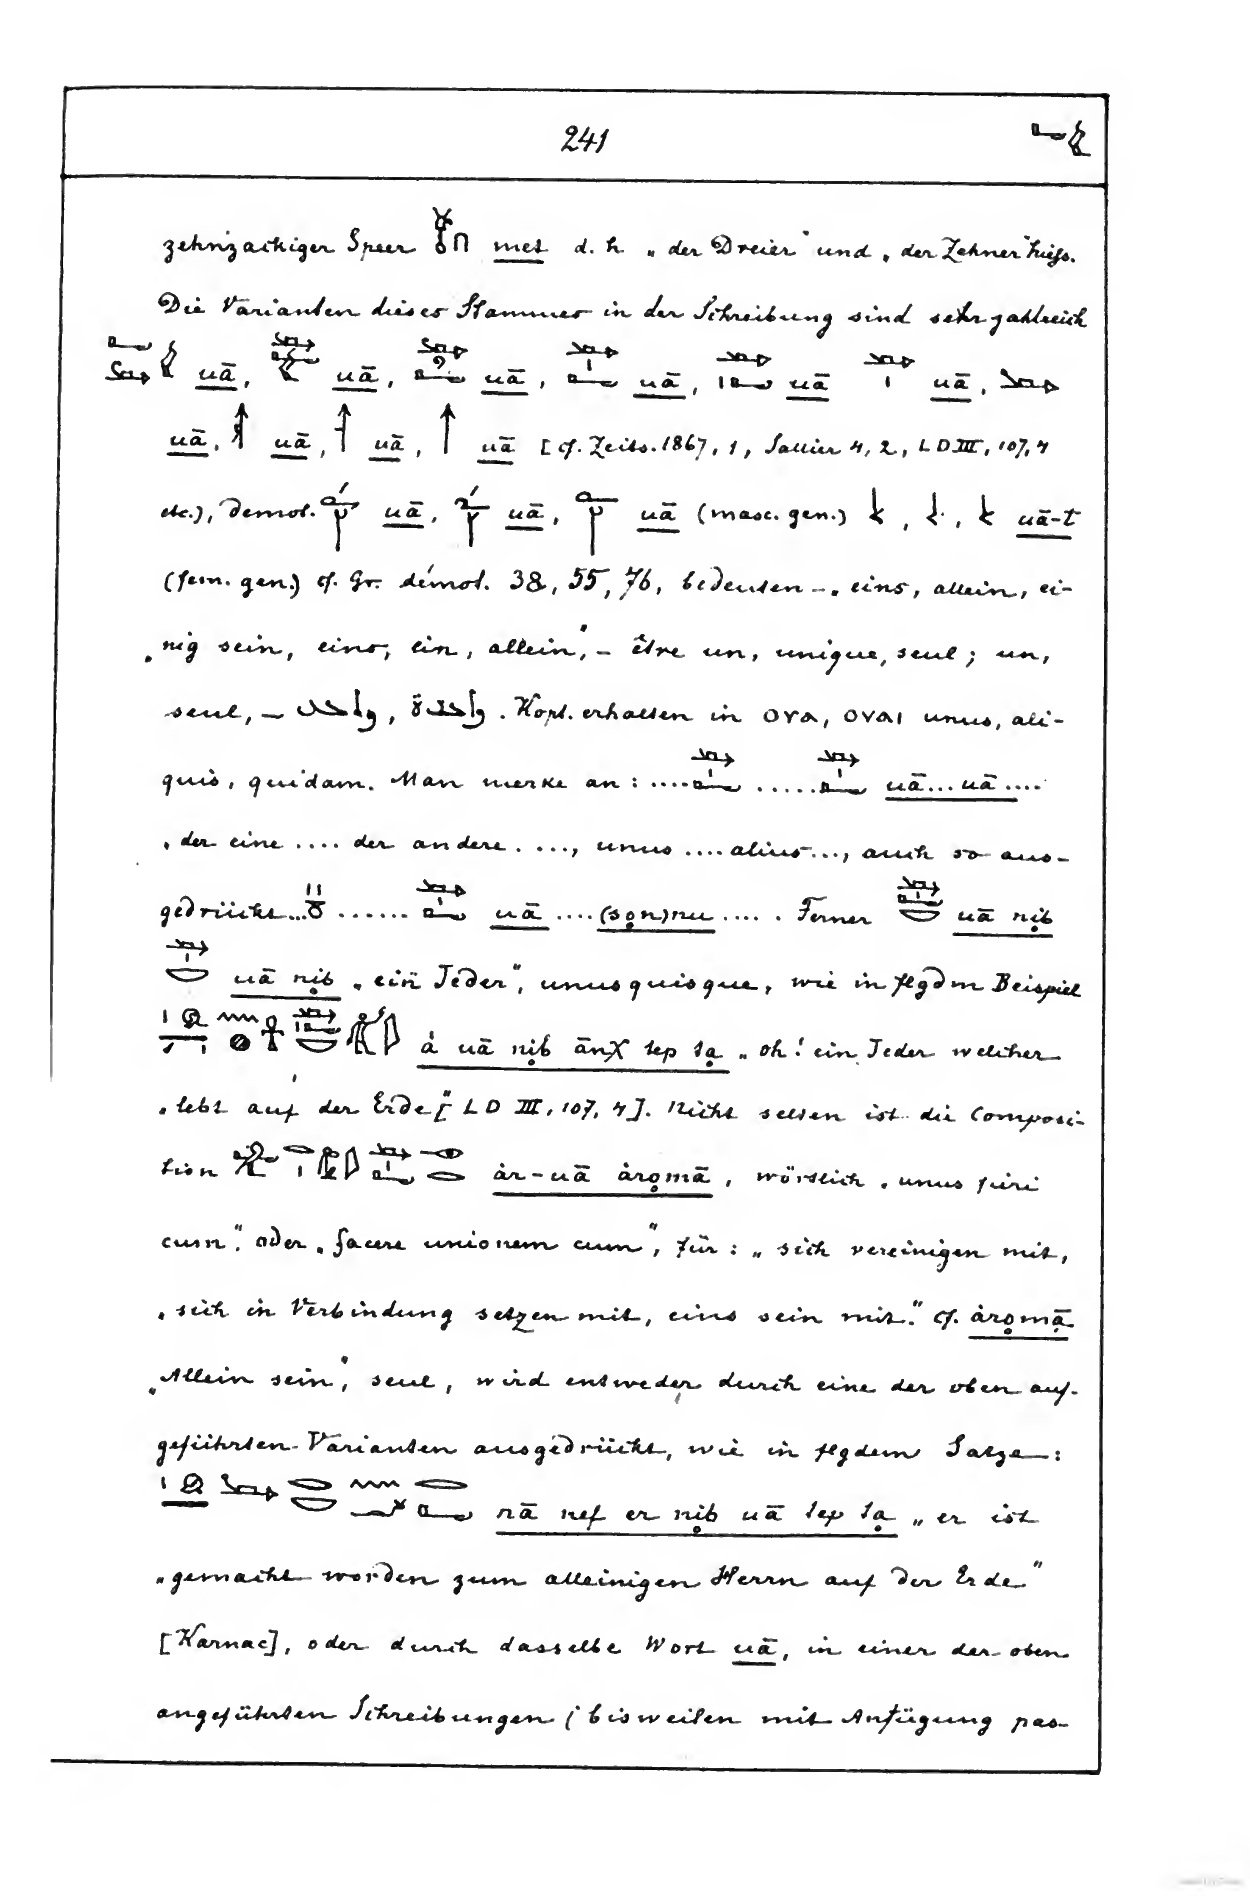 241
zehnzackiger Speer met d. h. „der Dreier" und „der Zehner" hiess.
Die Varianten dieses Stammes in der Schreibung sind sehr zahlreich
uā, uā, uā, uā, uā uā,
uā, uā, uā, uā [cf. Zeits. 1867, 1, Sallier 4, 2, LD III, 107, 4
etc.), demot. uā, uā, uā (masc. gen.) uā-t
(fem. gen.) cf. Gr. démot. 38, 55, 76, bedeuten – „eins, allein, ei-
„nig sein, eins, ein, allein", – être un, unique, seul; un,
seul, – واحد, واحدة. Kopt. erhalten in ⲟⲩⲁ, ⲟⲩⲁⲓ unus, ali-
quis, quidam. Man merke an: .... ..... uā...uā....
„der eine .... der andere ...., unus ....alius..., auch so aus-
gedrückt... ...... uā ....(sọn)nu ..... Ferner uā nịb
uā nịb „ein Jeder", unusquisque, wie in flgdm Beispiel
ȧ uā nịb ānχ tep tạ „oh! ein Jeder welcher
„lebt auf der Erde" [LD III, 107, 4]. Nicht selten ist die Composi-
tion ȧr-uā ȧrọmā, wörtlich „unus fieri
cum". oder „facere unionem cum", für: „sich vereinigen mit,
„sich in Verbindung setzen mit, eins sein mit." cf. ȧrọmā
„Allein sein", seul, wird entweder durch eine der oben auf-
geführten Varianten ausgedrückt, wie in flgdem Satze:
nā nef er nịb uā tep tạ „er ist
„gemacht worden zum alleinigen Herrn auf der Erde"
[Karnac], oder durch dasselbe Wort uā, in einer der oben
angeführten Schreibungen (bisweilen mit Anfügung pas-